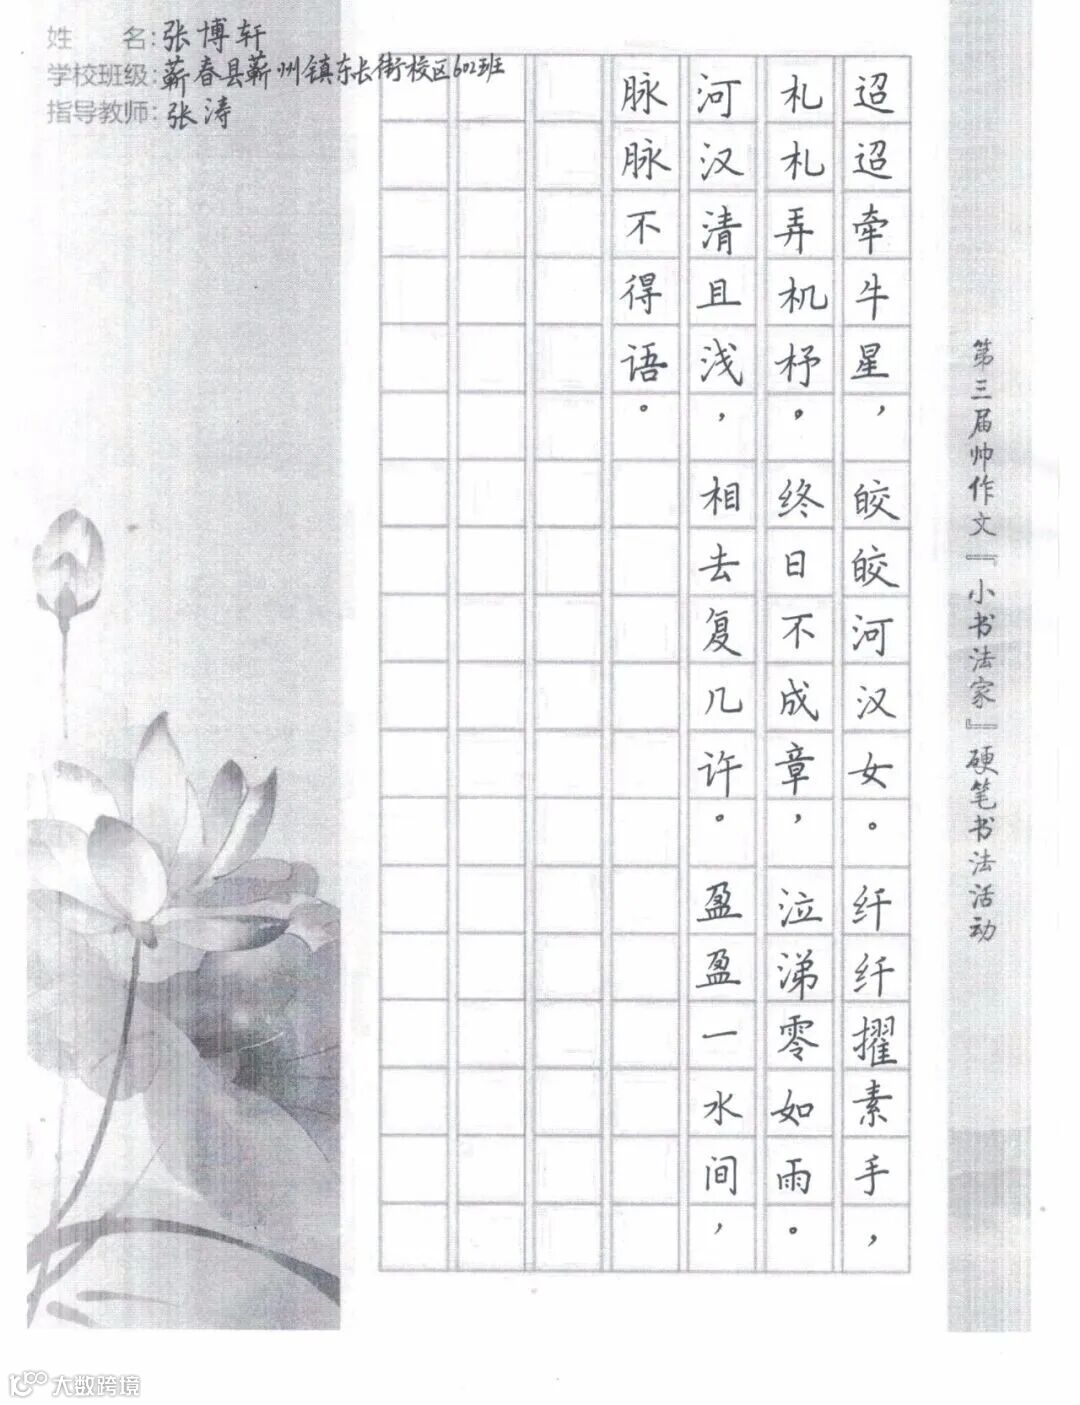 姓 名：张博轩
学校班级：蕲春县蕲州镇东长街校区602班
指导教师：张涛
第三届帅作文『小书法家』硬笔书法活动
迢迢牵牛星，皎皎河汉女。纤纤擢素手，
札札弄机杼。终日不成章，泣涕零如雨。
河汉清且浅，相去复几许。盈盈一水间，
脉脉不得语。
大数跨境